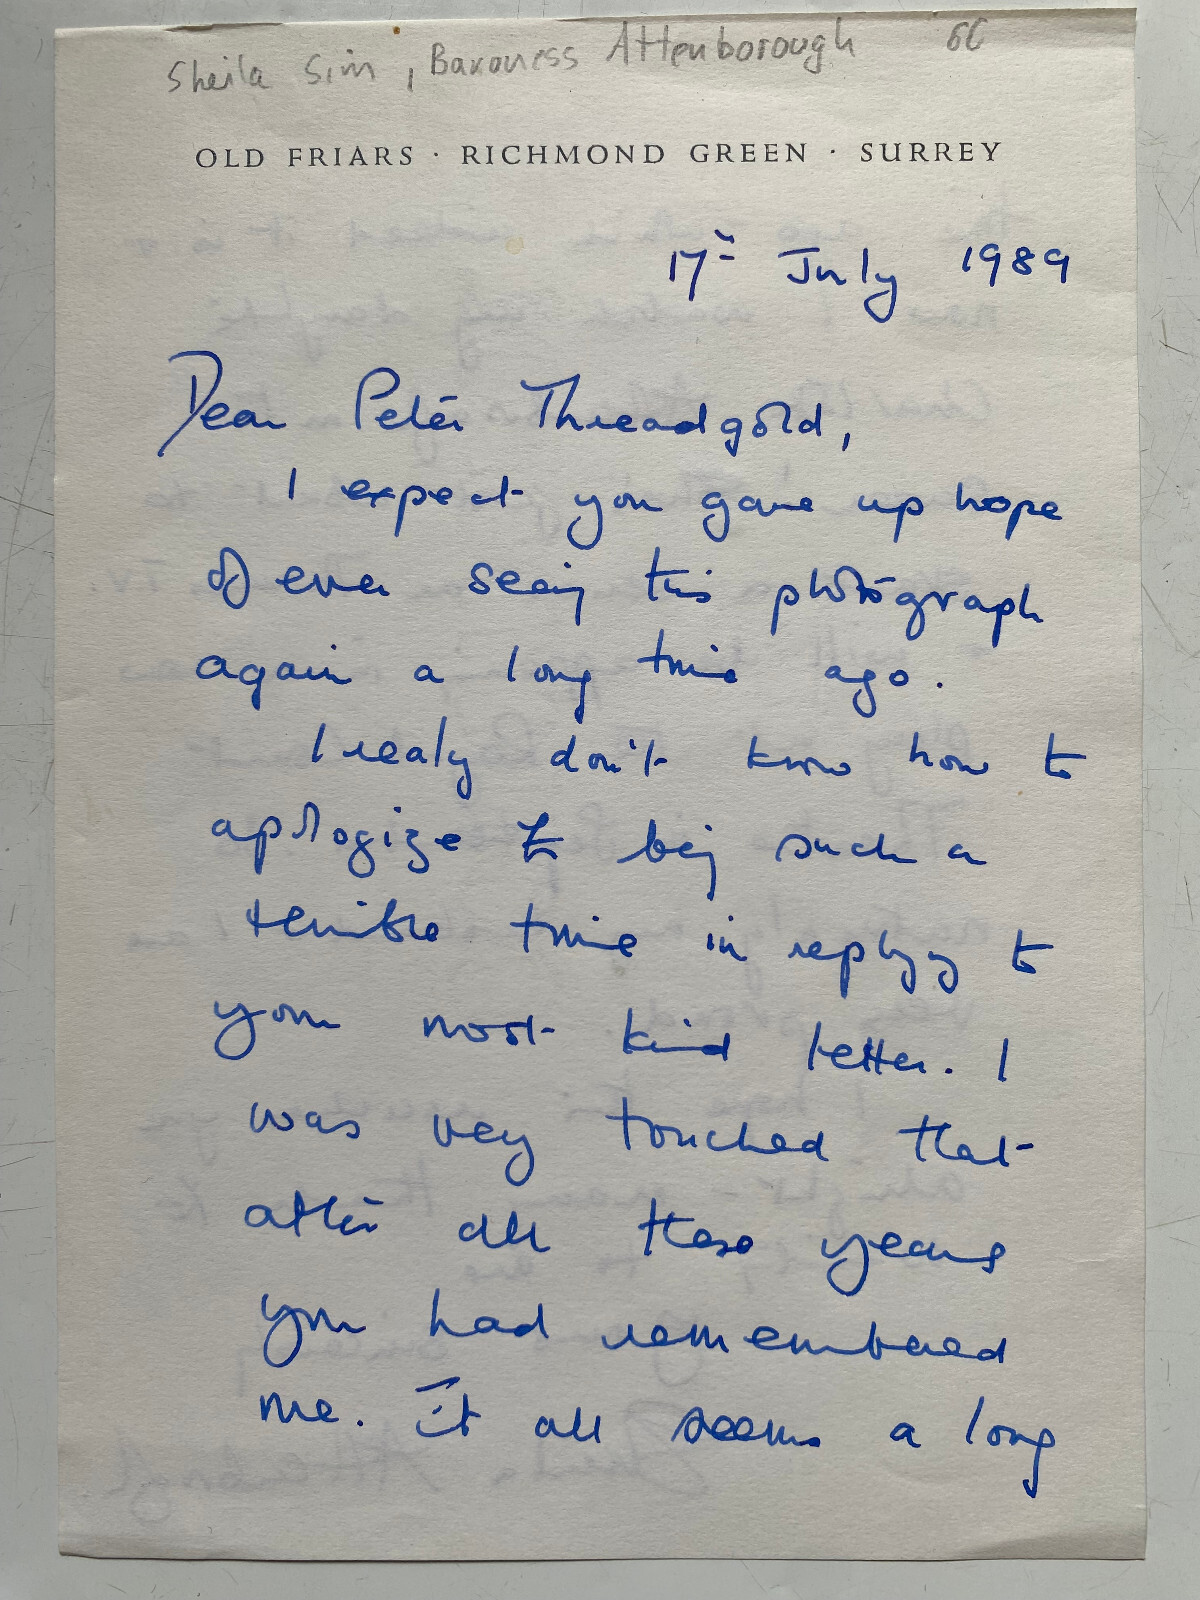 Sheila Sim, Baroness Attenborough 60
OLD FRIARS · RICHMOND GREEN · SURREY
17th July 1989
Dear Peter Threadgold,
I expect you gave up hope
of ever seeing this photograph
again a long time ago.
I really don't know how to
apologize for being such a
terrible time in replying to
your most kind letter. I
was very touched that
after all these years
you had remembered
me. It all seems a long